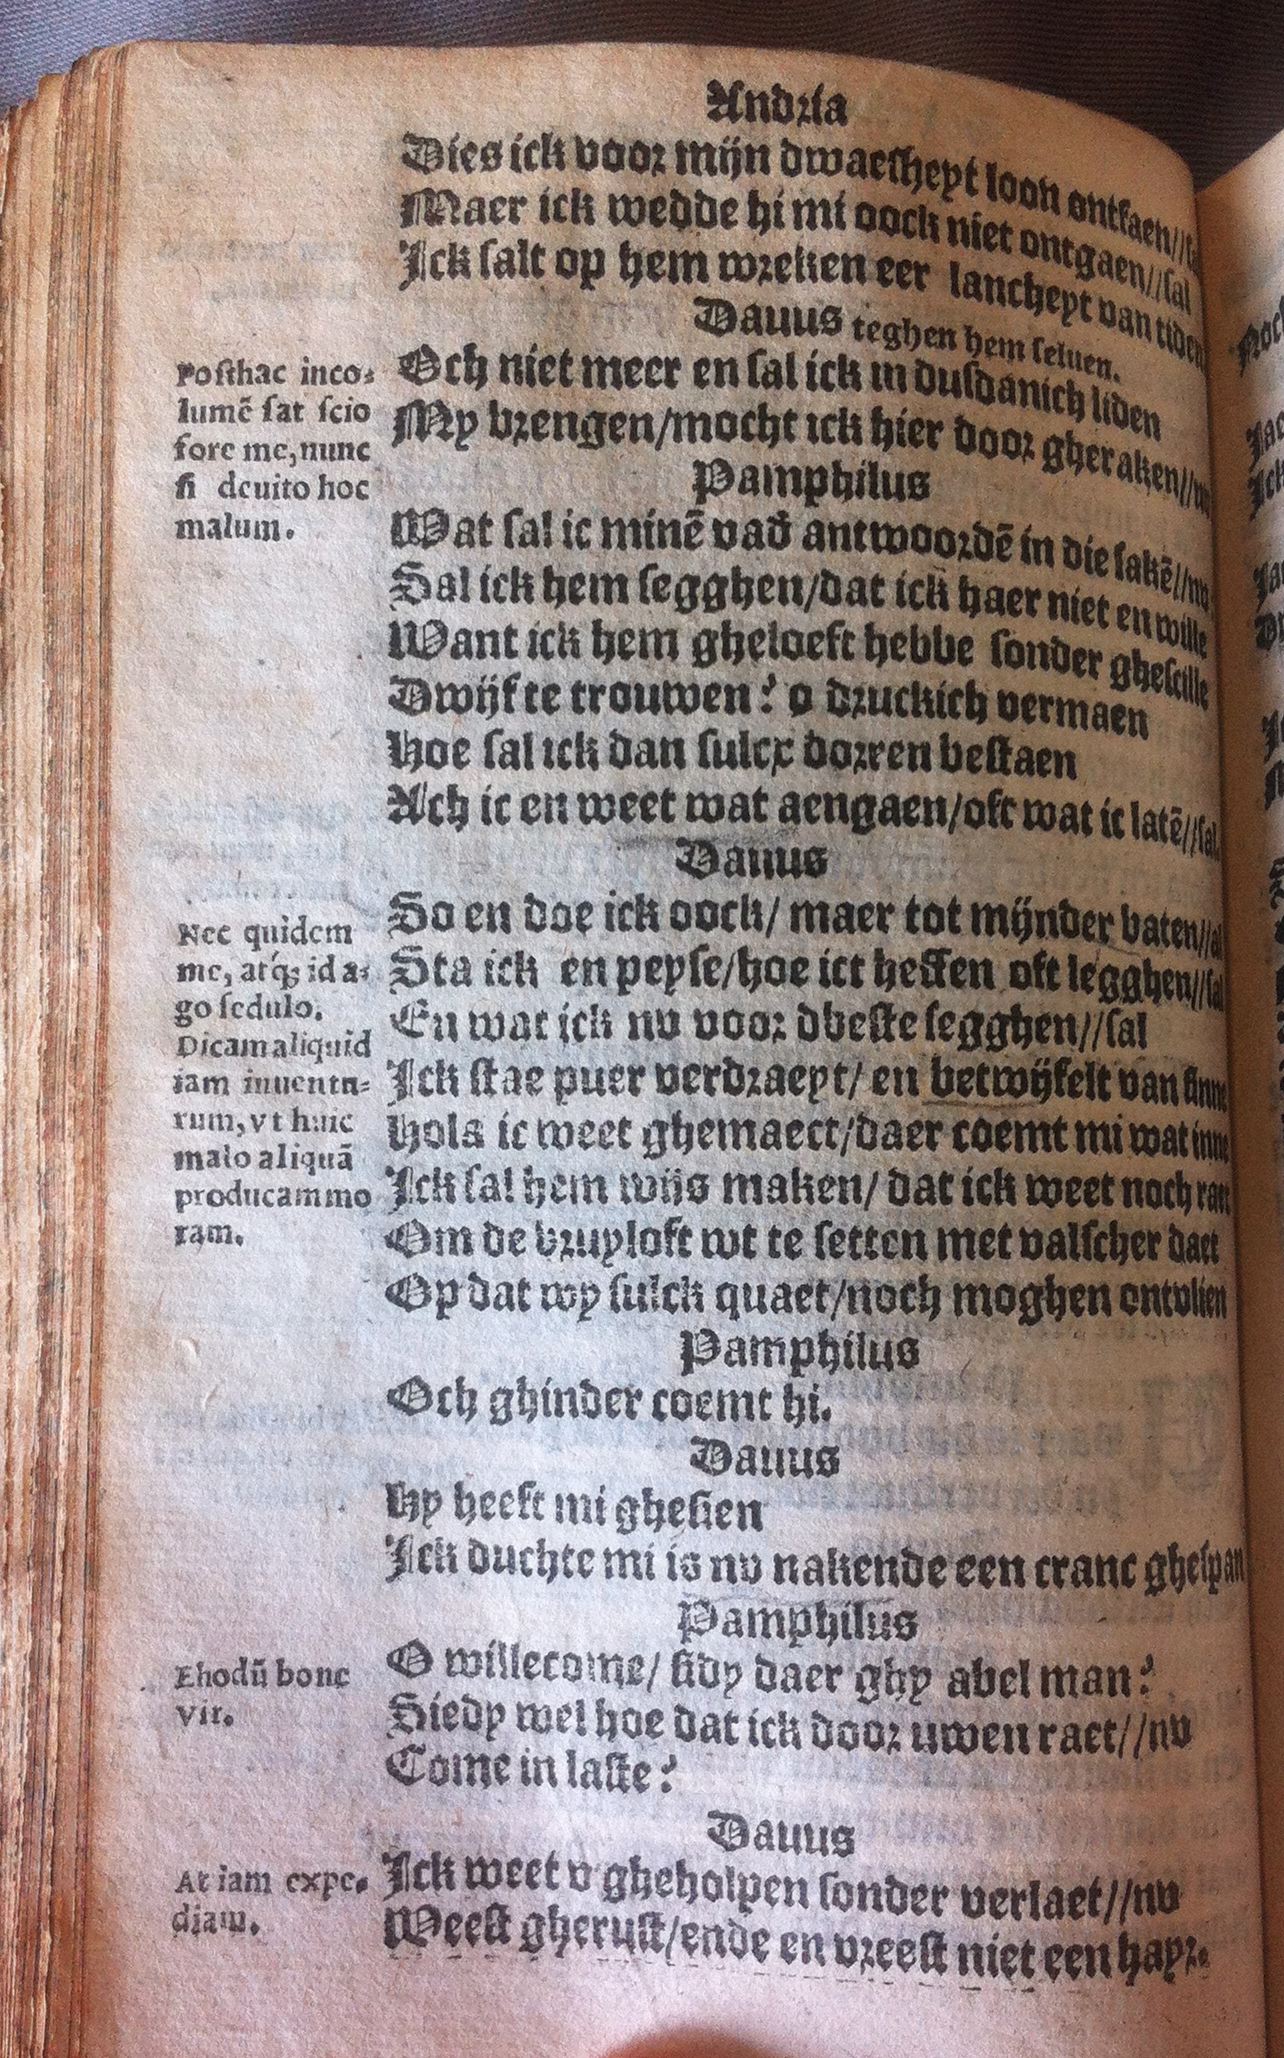 Andria
Dies ick voor mijn dwaesheyt loon ontfaen//
Maer ick wedde hi mi oock niet ontgaen//sal
Ick salt op hem wreken eer lancheyt van tiden
Dauus teghen hem seluen.
Och niet meer en sal ick in dusdanich liden
My brengen/mocht ick hier door gheraken//
Posthac inco-
lumē sat scio
fore me, nunc
si deuito hoc
malum.
Pamphilus
Wat sal ic minē vad antwoordē in die sakē//nv
Sal ick hem segghen/dat ick haer niet en wille
Want ick hem gheloeft hebbe sonder ghescille
Dwijf te trouwen? o druckich vermaen
Hoe sal ick dan sulcx dorren bestaen
Ach ic en weet wat aengaen/oft wat ic latē//sal.
Dauus
So en doe ick oock/ maer tot mijnder baten//al
Sta ick en peyse/hoe ict heffen oft legghen//sal
En wat ick nv voor dbeste segghen//sal
Ick stae puer verdraeyt/ en betwijfelt van sinne
Hola ic weet ghemaect/daer coemt mi wat inne
Ick sal hem wijs maken/ dat ick weet noch raet
Om de bruyloft wt te setten met valscher daet
Op dat wy sulck quaet/noch moghen ontvlien
Nec quidem
me, atq; id a-
go sedulo.
Dicam aliquid
iam inuentu-
rum, vt huic
malo aliquā
producam mo
ram.
Pamphilus
Och ghinder coemt hi.
Dauus
Hy heeft mi ghesien
Ick duchte mi is nv nakende een cranc ghespan
Pamphilus
O willecome/ sidy daer ghy abel man?
Siedy wel hoe dat ick door uwen raet//nv
Come in laste?
Ehodū bone
vir.
Dauus
Ick weet v gheholpen sonder verlaet//nv
Weest gherust/ende en vreest niet een hayr.
At iam expe-
diam.